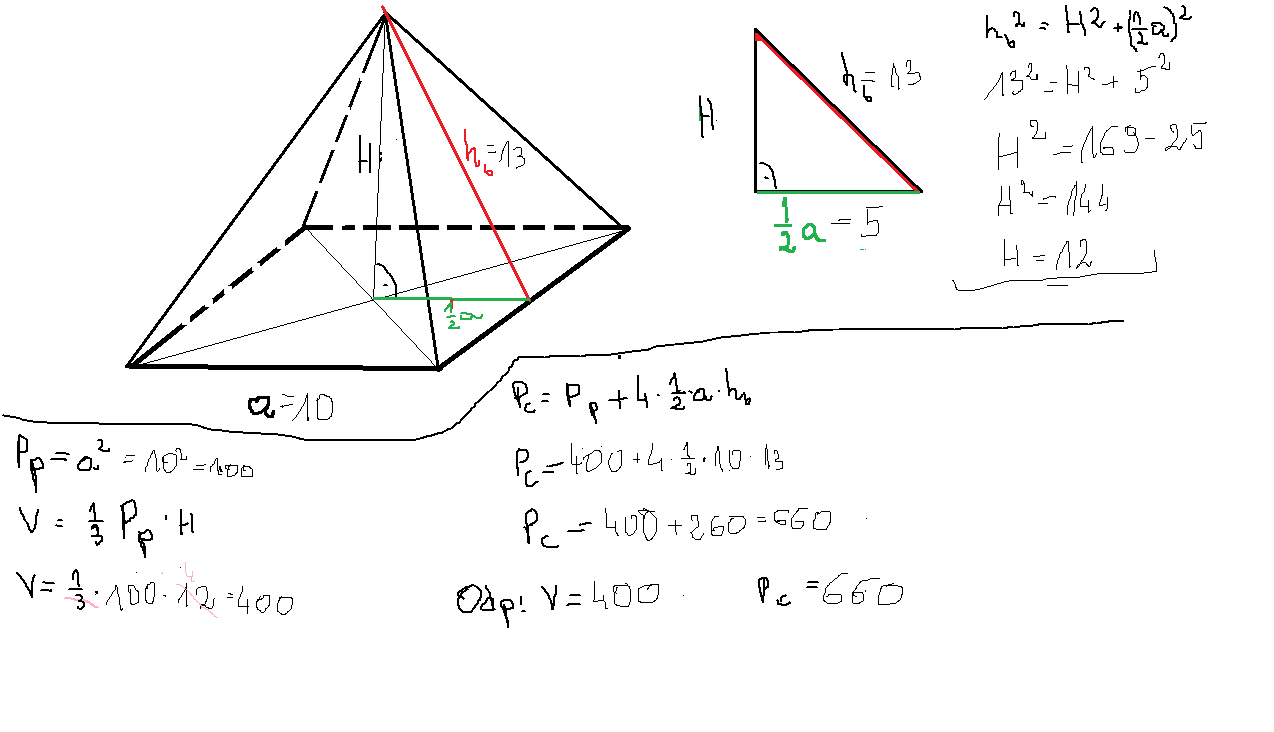 H
h_b = 13
½a
a = 10
H
h_b = 13
½a = 5
h_b² = H² + (½a)²
13² = H² + 5²
H² = 169 - 25
H² = 144
H = 12
P_p = a² = 10² = 100
V = ⅓ P_p · H
V = ⅓ · 100 · 12 = 400
4
P_c = P_p + 4 · ½ · a · h_b
P_c = 400 + 4 · ½ · 10 · 13
P_c = 400 + 260 = 660
Odp: V = 400 P_c = 660